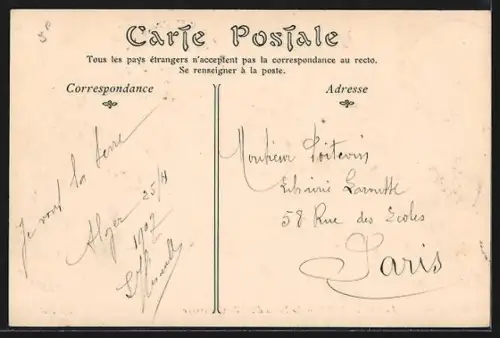 5ᶜ
Carte Postale
Tous les pays étrangers n'acceptent pas la correspondance au recto.
Se renseigner à la poste.
Correspondance
Adresse
Je vois la terre
Alger 25/8
1907
Monsieur Poitevin
Librairie Larousse
58 Rue des Ecoles
Paris